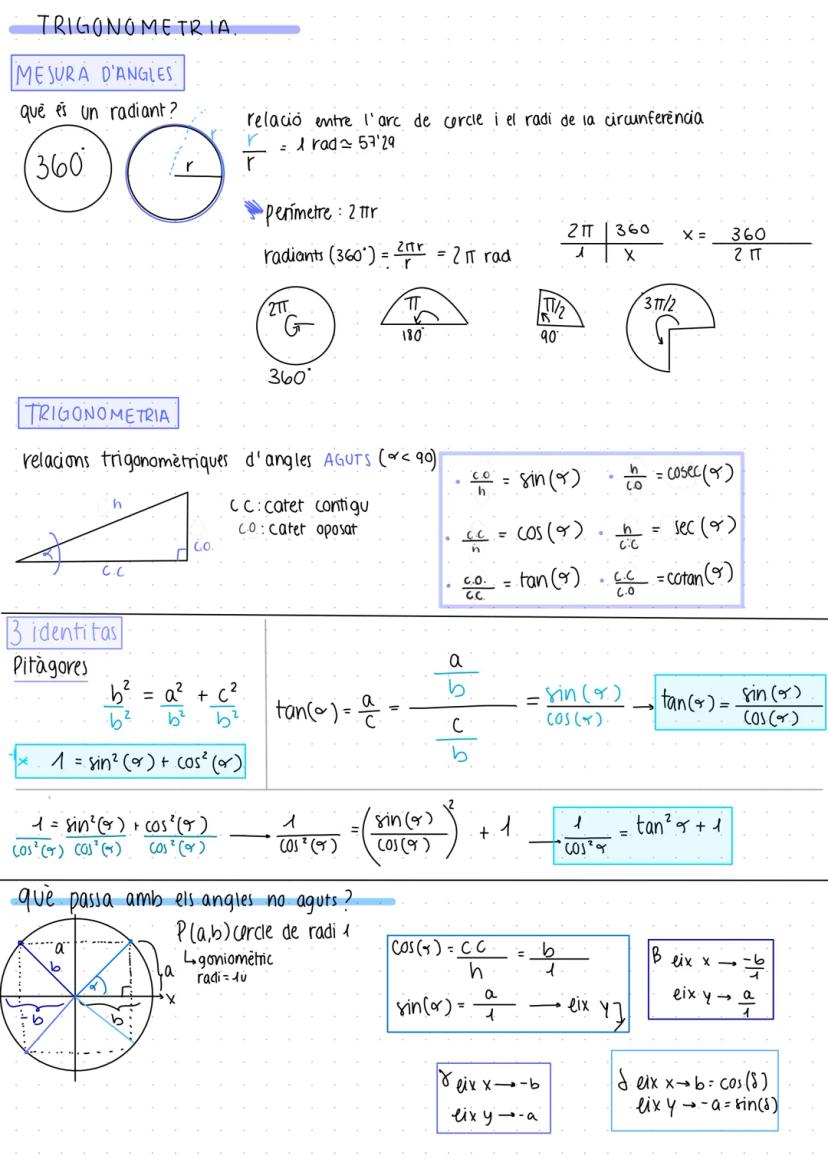 TRIGONOMETRIA.
MESURA D'ANGLES
què és un radiant?
360°
r
r
relació entre l'arc de cercle i el radi de la circumferència
r/r = 1 rad ≃ 57'29
perímetre: 2πr
radiants (360°) = 2πr/r = 2π rad
2π | 360
1 | x
x = 360/2π
2π
360°
π
180°
π/2
90°
3π/2
TRIGONOMETRIA
relacions trigonomètriques d'angles AGUTS (α< 90)
h
α
c.o.
c.c
CC: catet contigu
CO: catet oposat
· co/h = sin(α) · h/co = cosec(α)
· c.c/h = cos(α) · h/c.c = sec(α)
· c.o./c.c. = tan(α) · c.c/c.o = cotan(α)
3 identitas
Pitàgores
b²/b² = a²/b² + c²/b²
* 1 = sin²(α) + cos²(α)
tan(α) = a/c = (a/b)/(c/b) = sin(α)/cos(α) → tan(α) = sin(α)/cos(α)
1/cos²(α) = sin²(α)/cos²(α) + cos²(α)/cos²(α) → 1/cos²(α) = (sin(α)/cos(α))² + 1 → 1/cos²α = tan²α + 1
què passa amb els angles no aguts?
a
b
α
a
x
-b
b
P(a,b) cercle de radi 1
↳ goniomètric
radi = 1u
cos(α) = cc/h = b/1
sin(α) = a/1 → eix y
β eix x → -b/1
eix y → a/1
γ eix x → -b
eix y → -a
δ eix x → b = cos(δ)
eix y → -a = sin(δ)